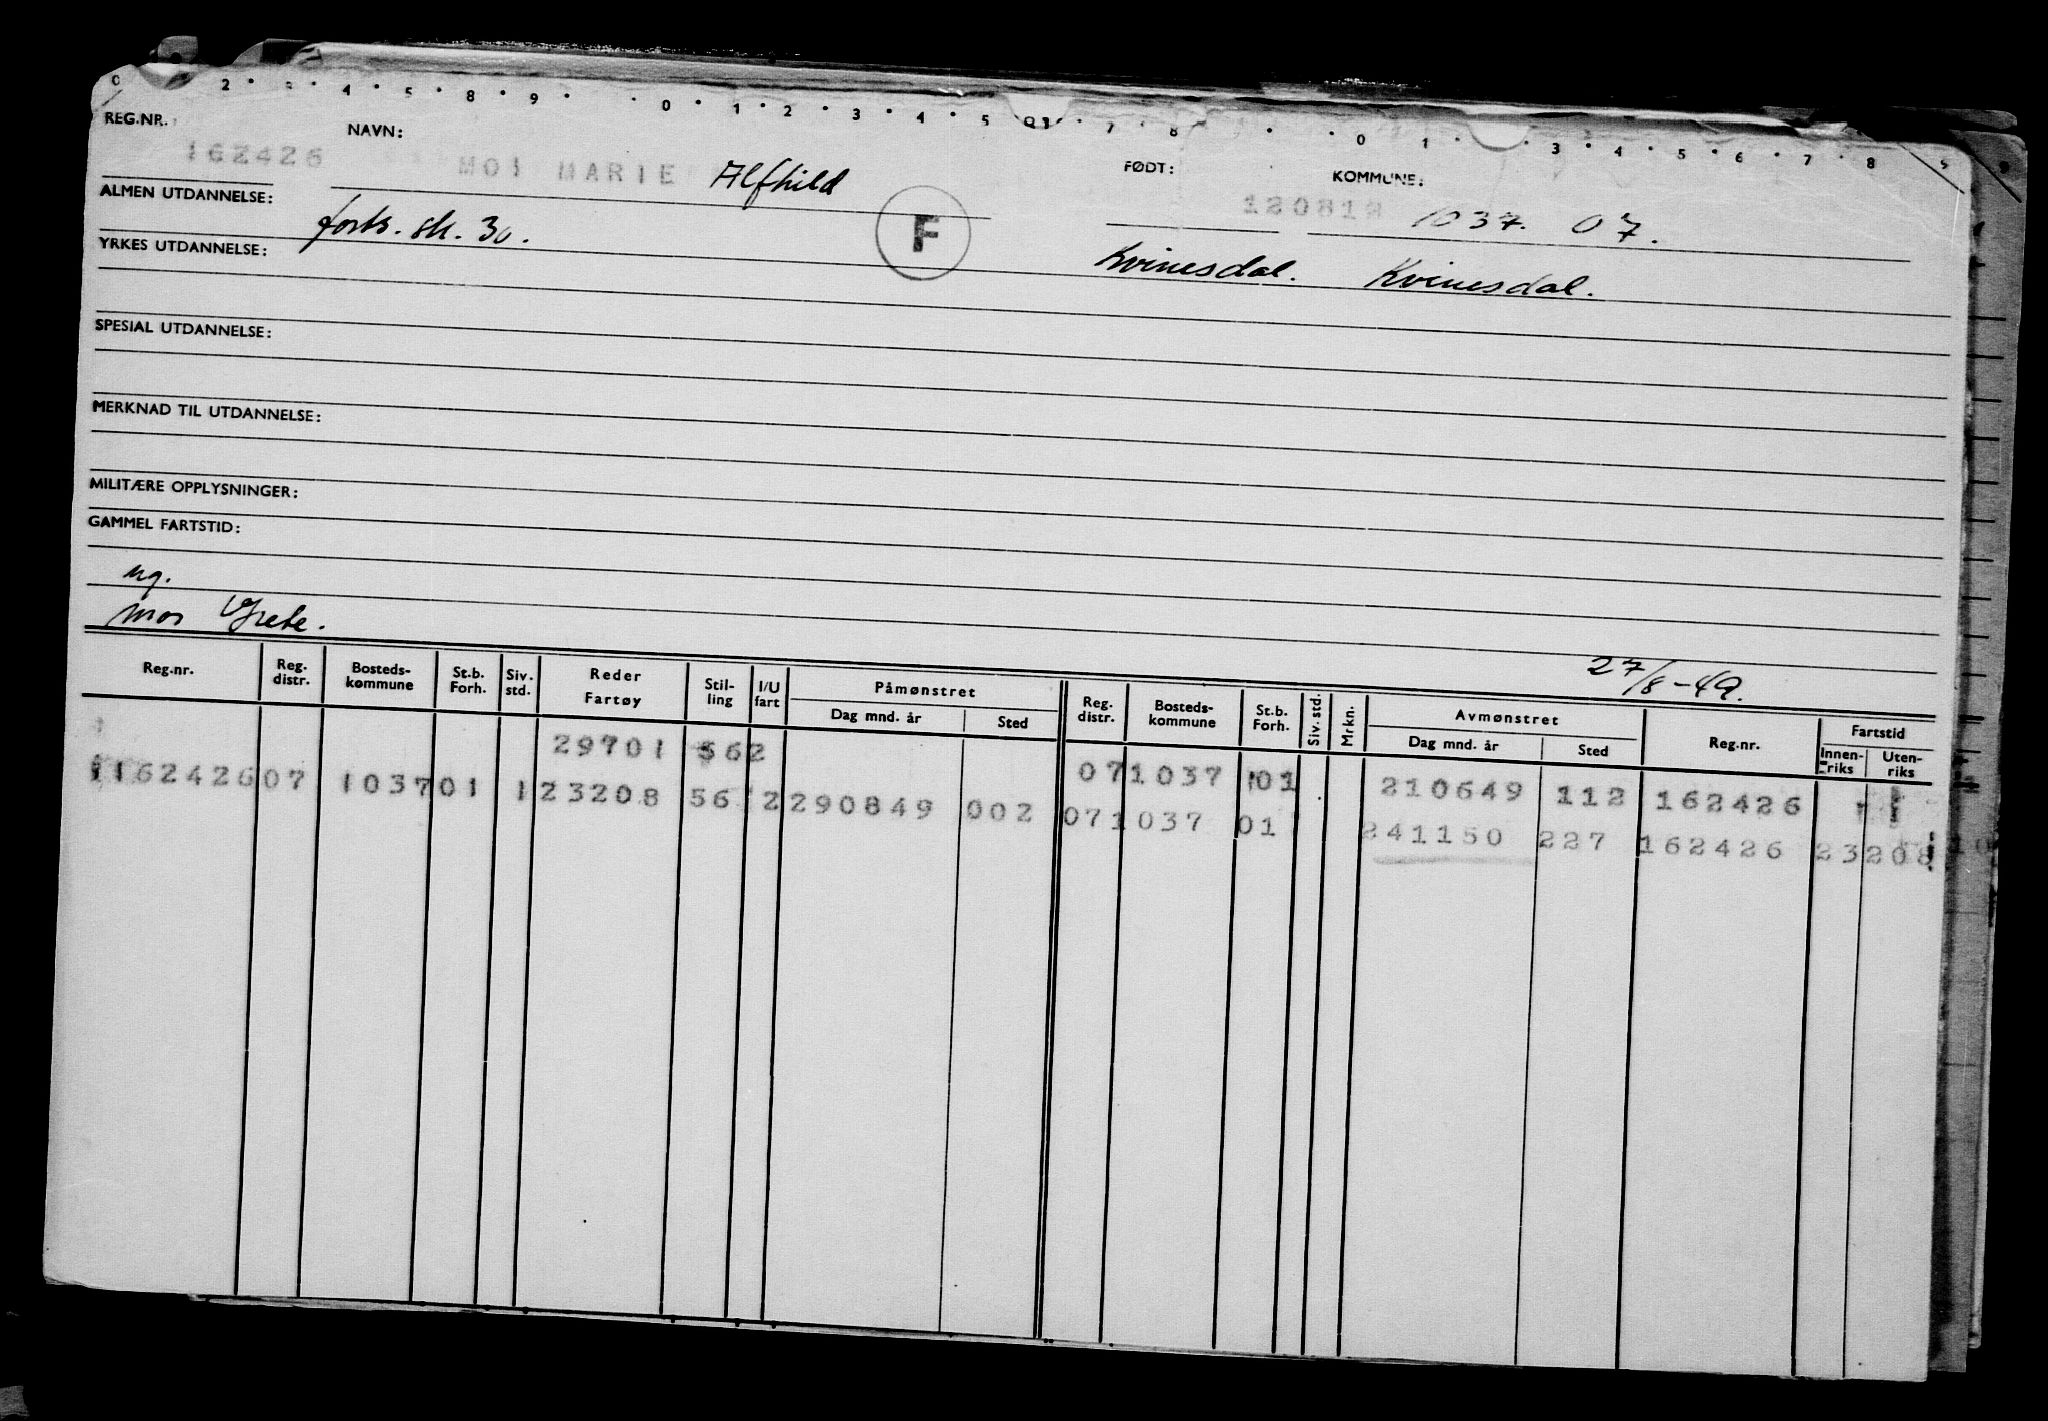 REG.NR. NAVN: FØDT: KOMMUNE:
162426 MOI MARIE Alfhild 120812 1037. 07.
ALMEN UTDANNELSE: forts. sk. 30. F
Kvinesdal. Kvinesdal.
YRKES UTDANNELSE:
SPESIAL UTDANNELSE:
MERKNAD TIL UTDANNELSE:
MILITÆRE OPPLYSNINGER:
GAMMEL FARTSTID:
ug.
mor Grete.
27/8-49.
Reg.nr. Reg. distr. Bosteds-kommune St.b. Forh. Siv. std. Reder Fartøy Stil-ling I/U fart Påmønstret Dag mnd. år Sted Reg. distr. Bosteds-kommune St.b. Forh. Siv. std. Mrkn. Avmønstret Dag mnd. år Sted Reg.nr. Fartstid Innen-riks Uten-riks
29701 562 07 1037 01 210649 112 162426
162426 07 1037 01 1 23208 56 2 290849 002 07 1037 01 241150 227 162426 23208